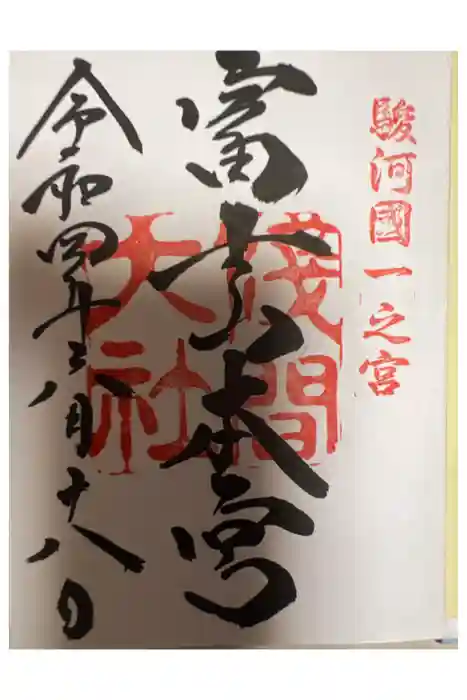 駿河國一之宮
富士山本宮
淺間大社
令和四年六月十八日